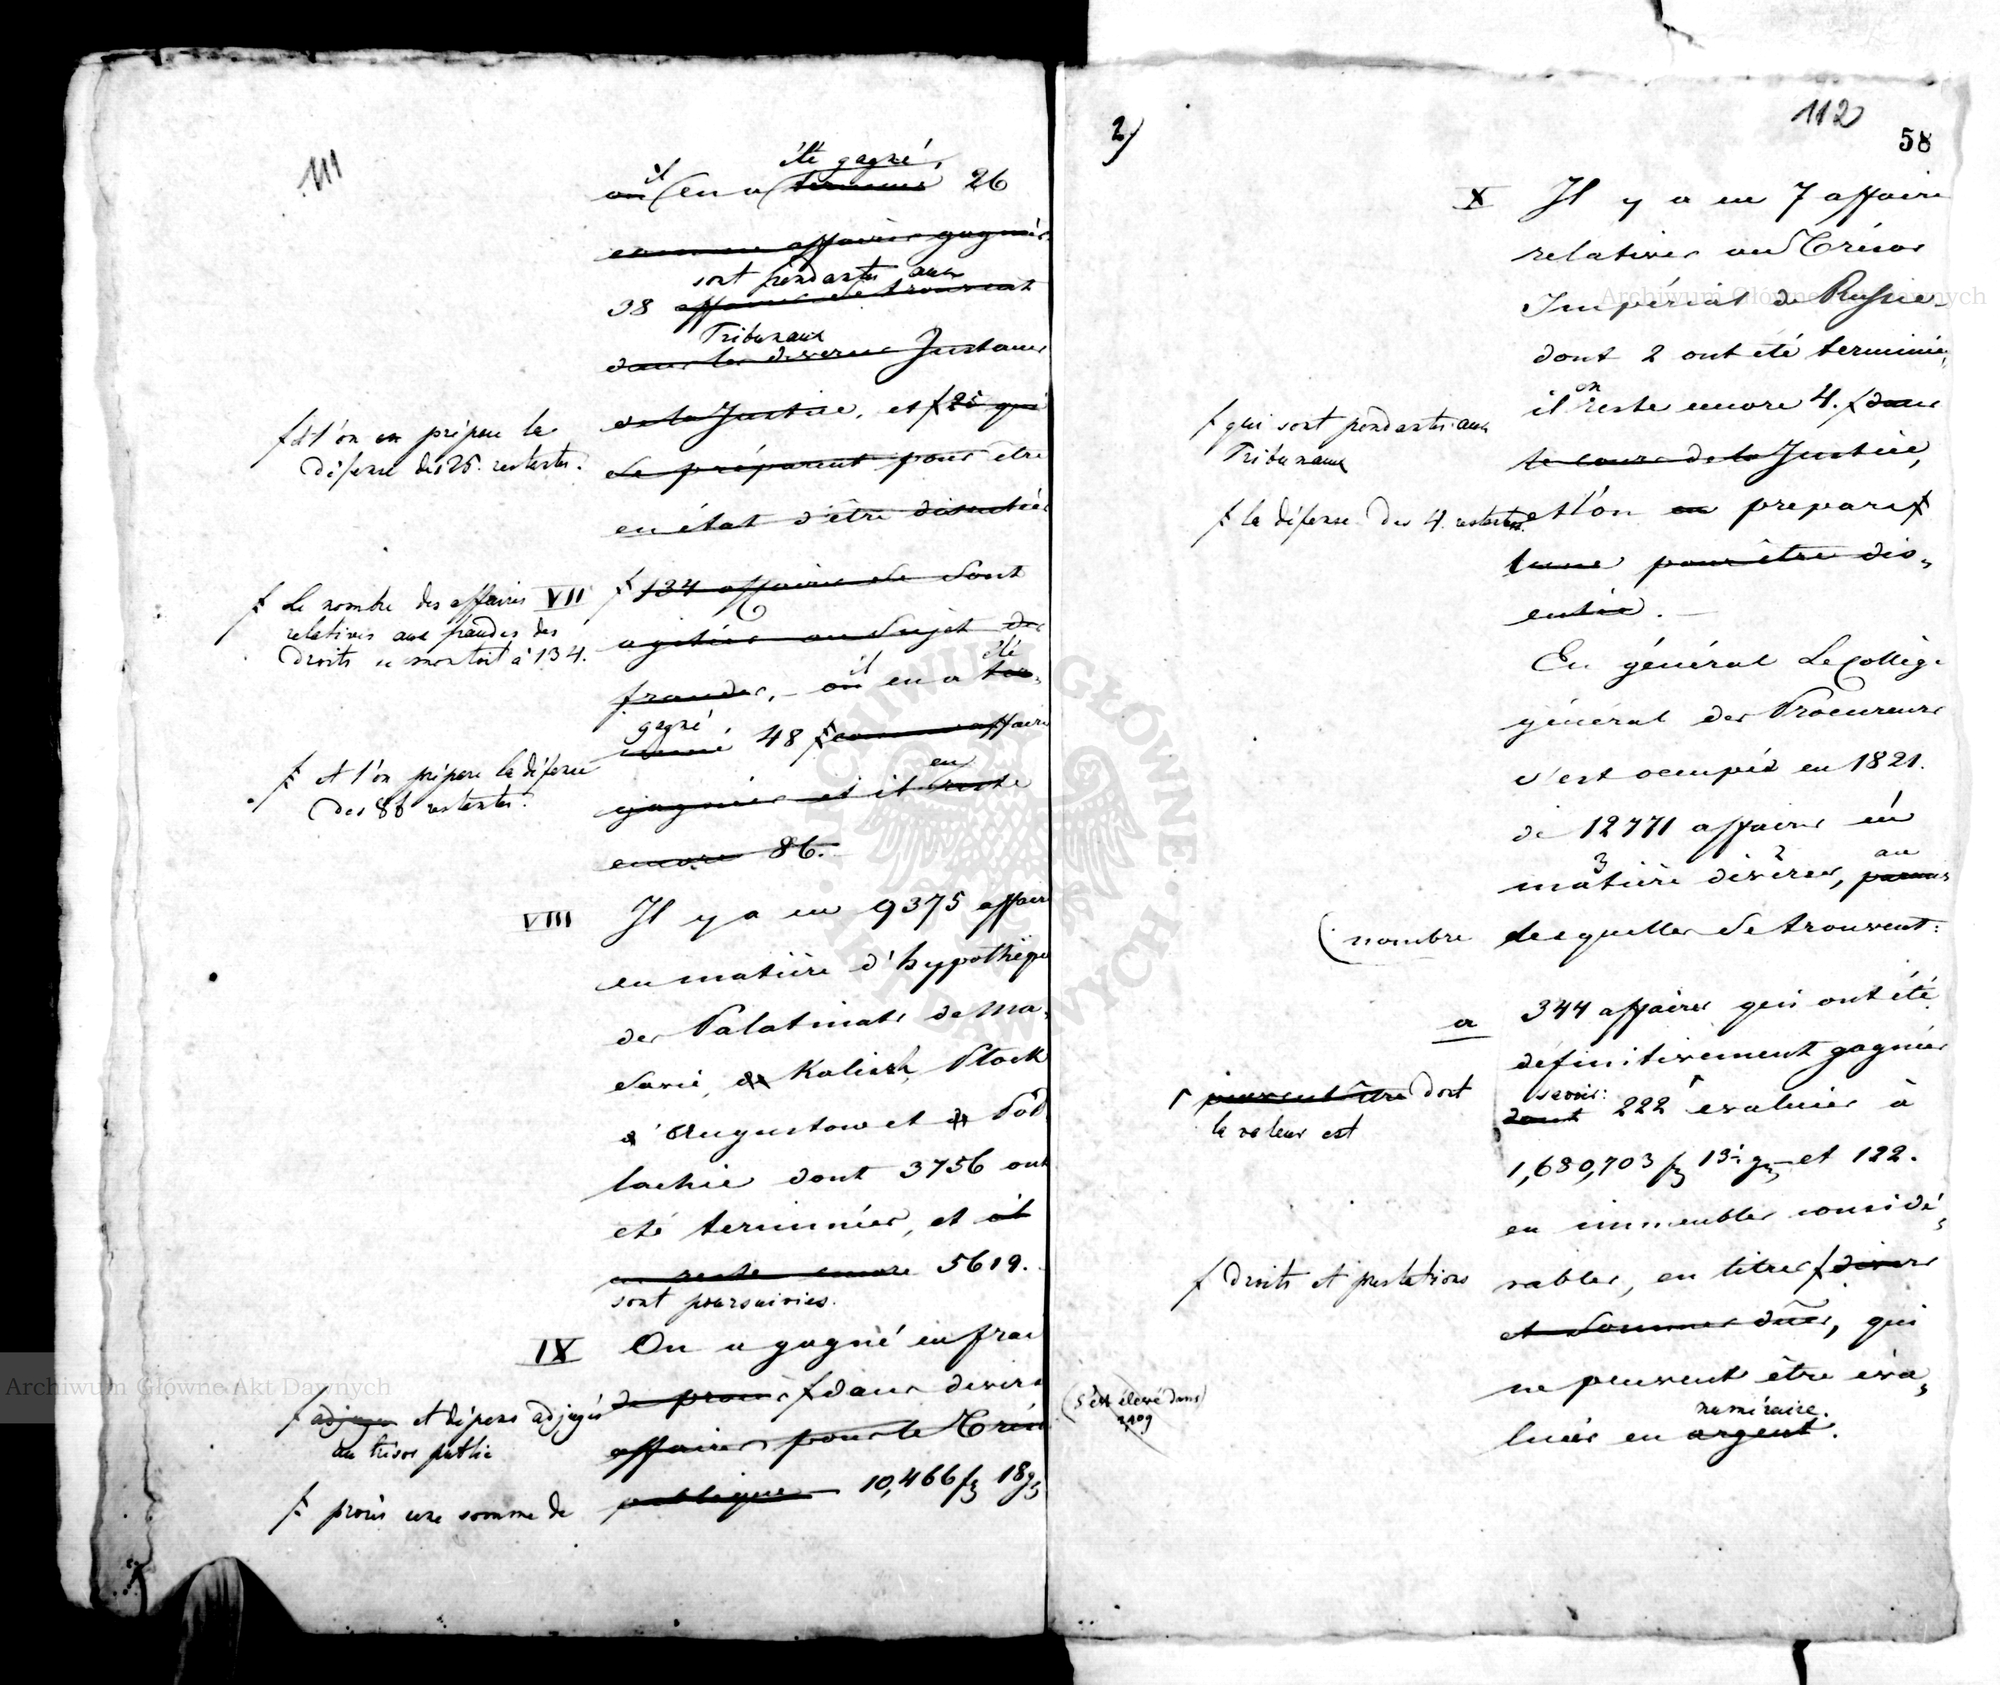 111
il été gagné
ou en a terminé 26
comme affaires gagnées
sont pendantes aux
38 affaires se trouvent
Tribunaux
dans les diverses Instances
de la Justice, et 25 qui
et l'on en prépare la
défense des 25. restantes.
se préparent pour être
en état d'être discutées
VII
134 affaires se sont
Le nombre des affaires
relatives aux fraudes des
droits se montoit à 134.
agitées au sujet des
il été
fraudes, - ou en a ter-
gagné
miné 48 comme affaires
et l'on prépare la défense
des 86 restantes.
en
gagnées et il reste
encore 86.
VIII
Il y a eu 9375 affaires
en matière d'hypothèque
des Palatinats de Ma-
sovie, de Kalisch, Plock
d'Augustow et de Pod-
lachie dont 3756 ont
été terminées, et il
en reste encore 5619.
sont poursuivies.
IX
On a gagné en frais
de procès dans divers
et dépens adjugés
au trésor public
affaires pour le Trésor
publique 10,466 fz 18 gz
procès une somme de
2)
112
58
X
Il y a eu 7 affaires
relatives au Trésor
Impérial de Russie
dont 2 ont été terminées,
en
il reste encore 4. dans
qui sont pendantes aux
Tribunaux
le cours de la Justice,
et l'on en prepare
la défense des 4. restantes.
l'une pour être dis-
cutée. -
En général Le Collège
général des Procureurs
s'est occupé en 1821.
de 12771 affaires en
3 2 au
matière diverses, parmis
nombre
desquelles se trouvent:
a
344 affaires qui ont été
définitivement gagnées
savoir:
dont 222 evaluées à
peuvent être dont
la valeur est
1,680,703 fz 13 gz et 122.
en immeubles considé-
rables, en titres divers
droits et prestations
et sommes dües, qui
ne peuvent être éva-
numéraire.
luées en argent.
s'est élevé dans